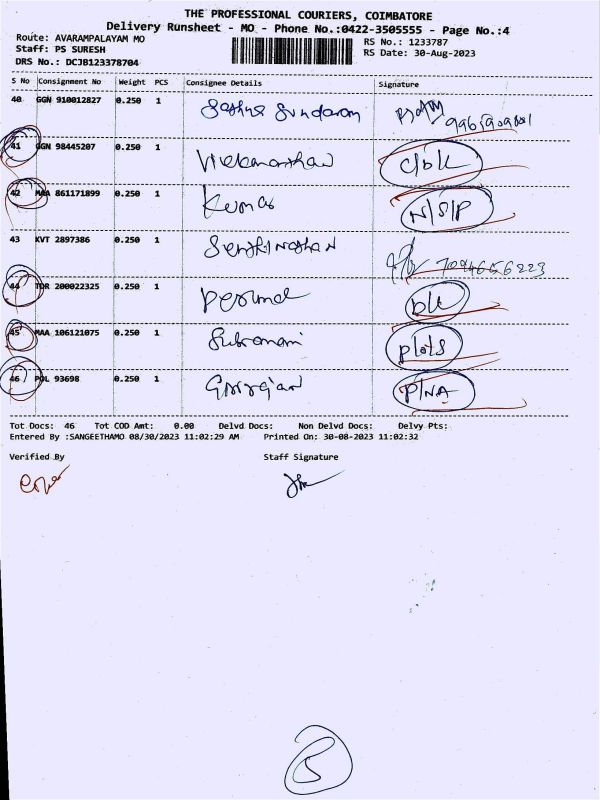 THE PROFESSIONAL COURIERS, COIMBATORE
Delivery Runsheet - MO - Phone No.:0422-3505555 - Page No.:4
Route: AVARAMPALAYAM MO
RS No.: 1233787
Staff: PS SURESH
RS Date: 30-Aug-2023
DRS No.: DCJB123378704
S No Consignment No Weight PCS Consignee Details Signature
40 GGN 910012827 0.250 1 Sathya Sundaram
41 GGN 98445207 0.250 1 Vivekananthan
42 MAA 861171899 0.250 1 Kumar N/S/P
43 KVT 2897386 0.250 1 Senthilnathan 7094656223
44 TDR 200022325 0.250 1 Perumal
45 MAA 106121075 0.250 1 Subramani plots
46 POL 93698 0.250 1 P/NA
Tot Docs: 46 Tot COD Amt: 0.00 Delvd Docs: Non Delvd Docs: Delvy Pts:
Entered By :SANGEETHAMO 08/30/2023 11:02:29 AM Printed On: 30-08-2023 11:02:32
Verified By Staff Signature
5